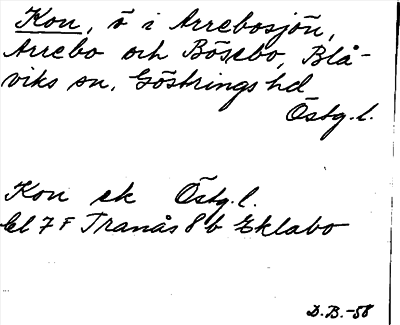 Kon, ö i Arrebosjön,
Arrebo och Bösebo, Blå-
viks sn, Göstrings hd
Östg. l.
Kon ek Östg. l.
bl 7 F Tranås 8 b Eklabo
D.B.-58